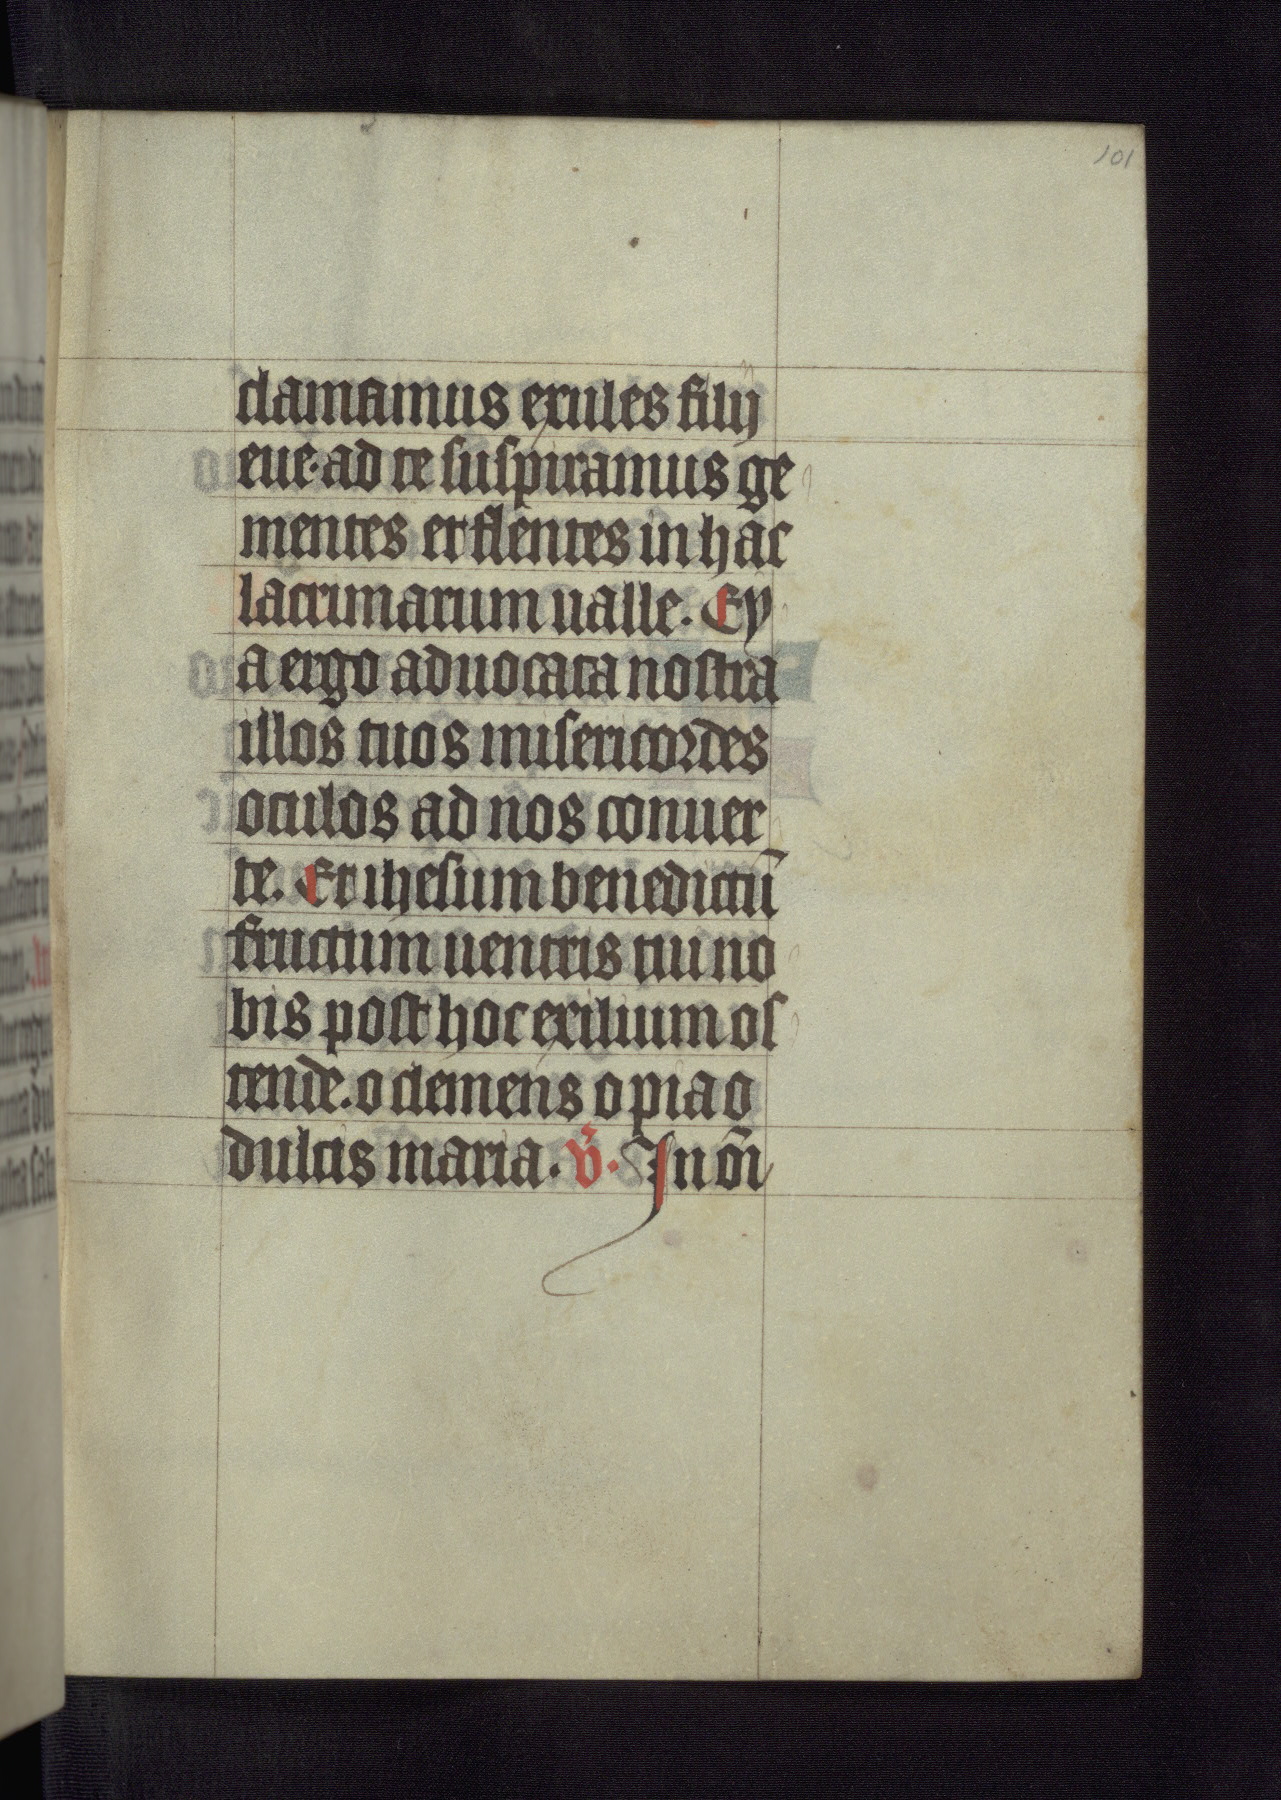 101
clamamus exules filij
eue. ad te suspiramus ge
mentes et flentes in hac
lacrimarum ualle. Ey
a ergo aduocata nostra
illos tuos misericordes
oculos ad nos conuer
te. Et ihesum benedictū
fructum uentris tui no
bis post hoc exilium os
tende. o clemens o pia o
dulcis maria. v̄. In om̄i